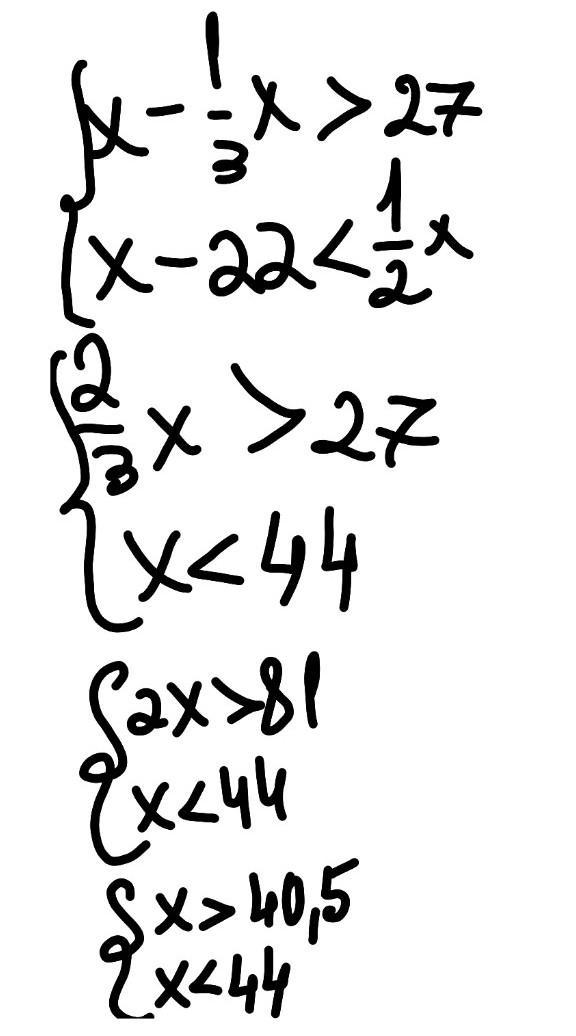 {x - 1/3 x > 27
x - 22 < 1/2 x
{2/3 x > 27
x < 44
{2x > 81
x < 44
{x > 40,5
x < 44